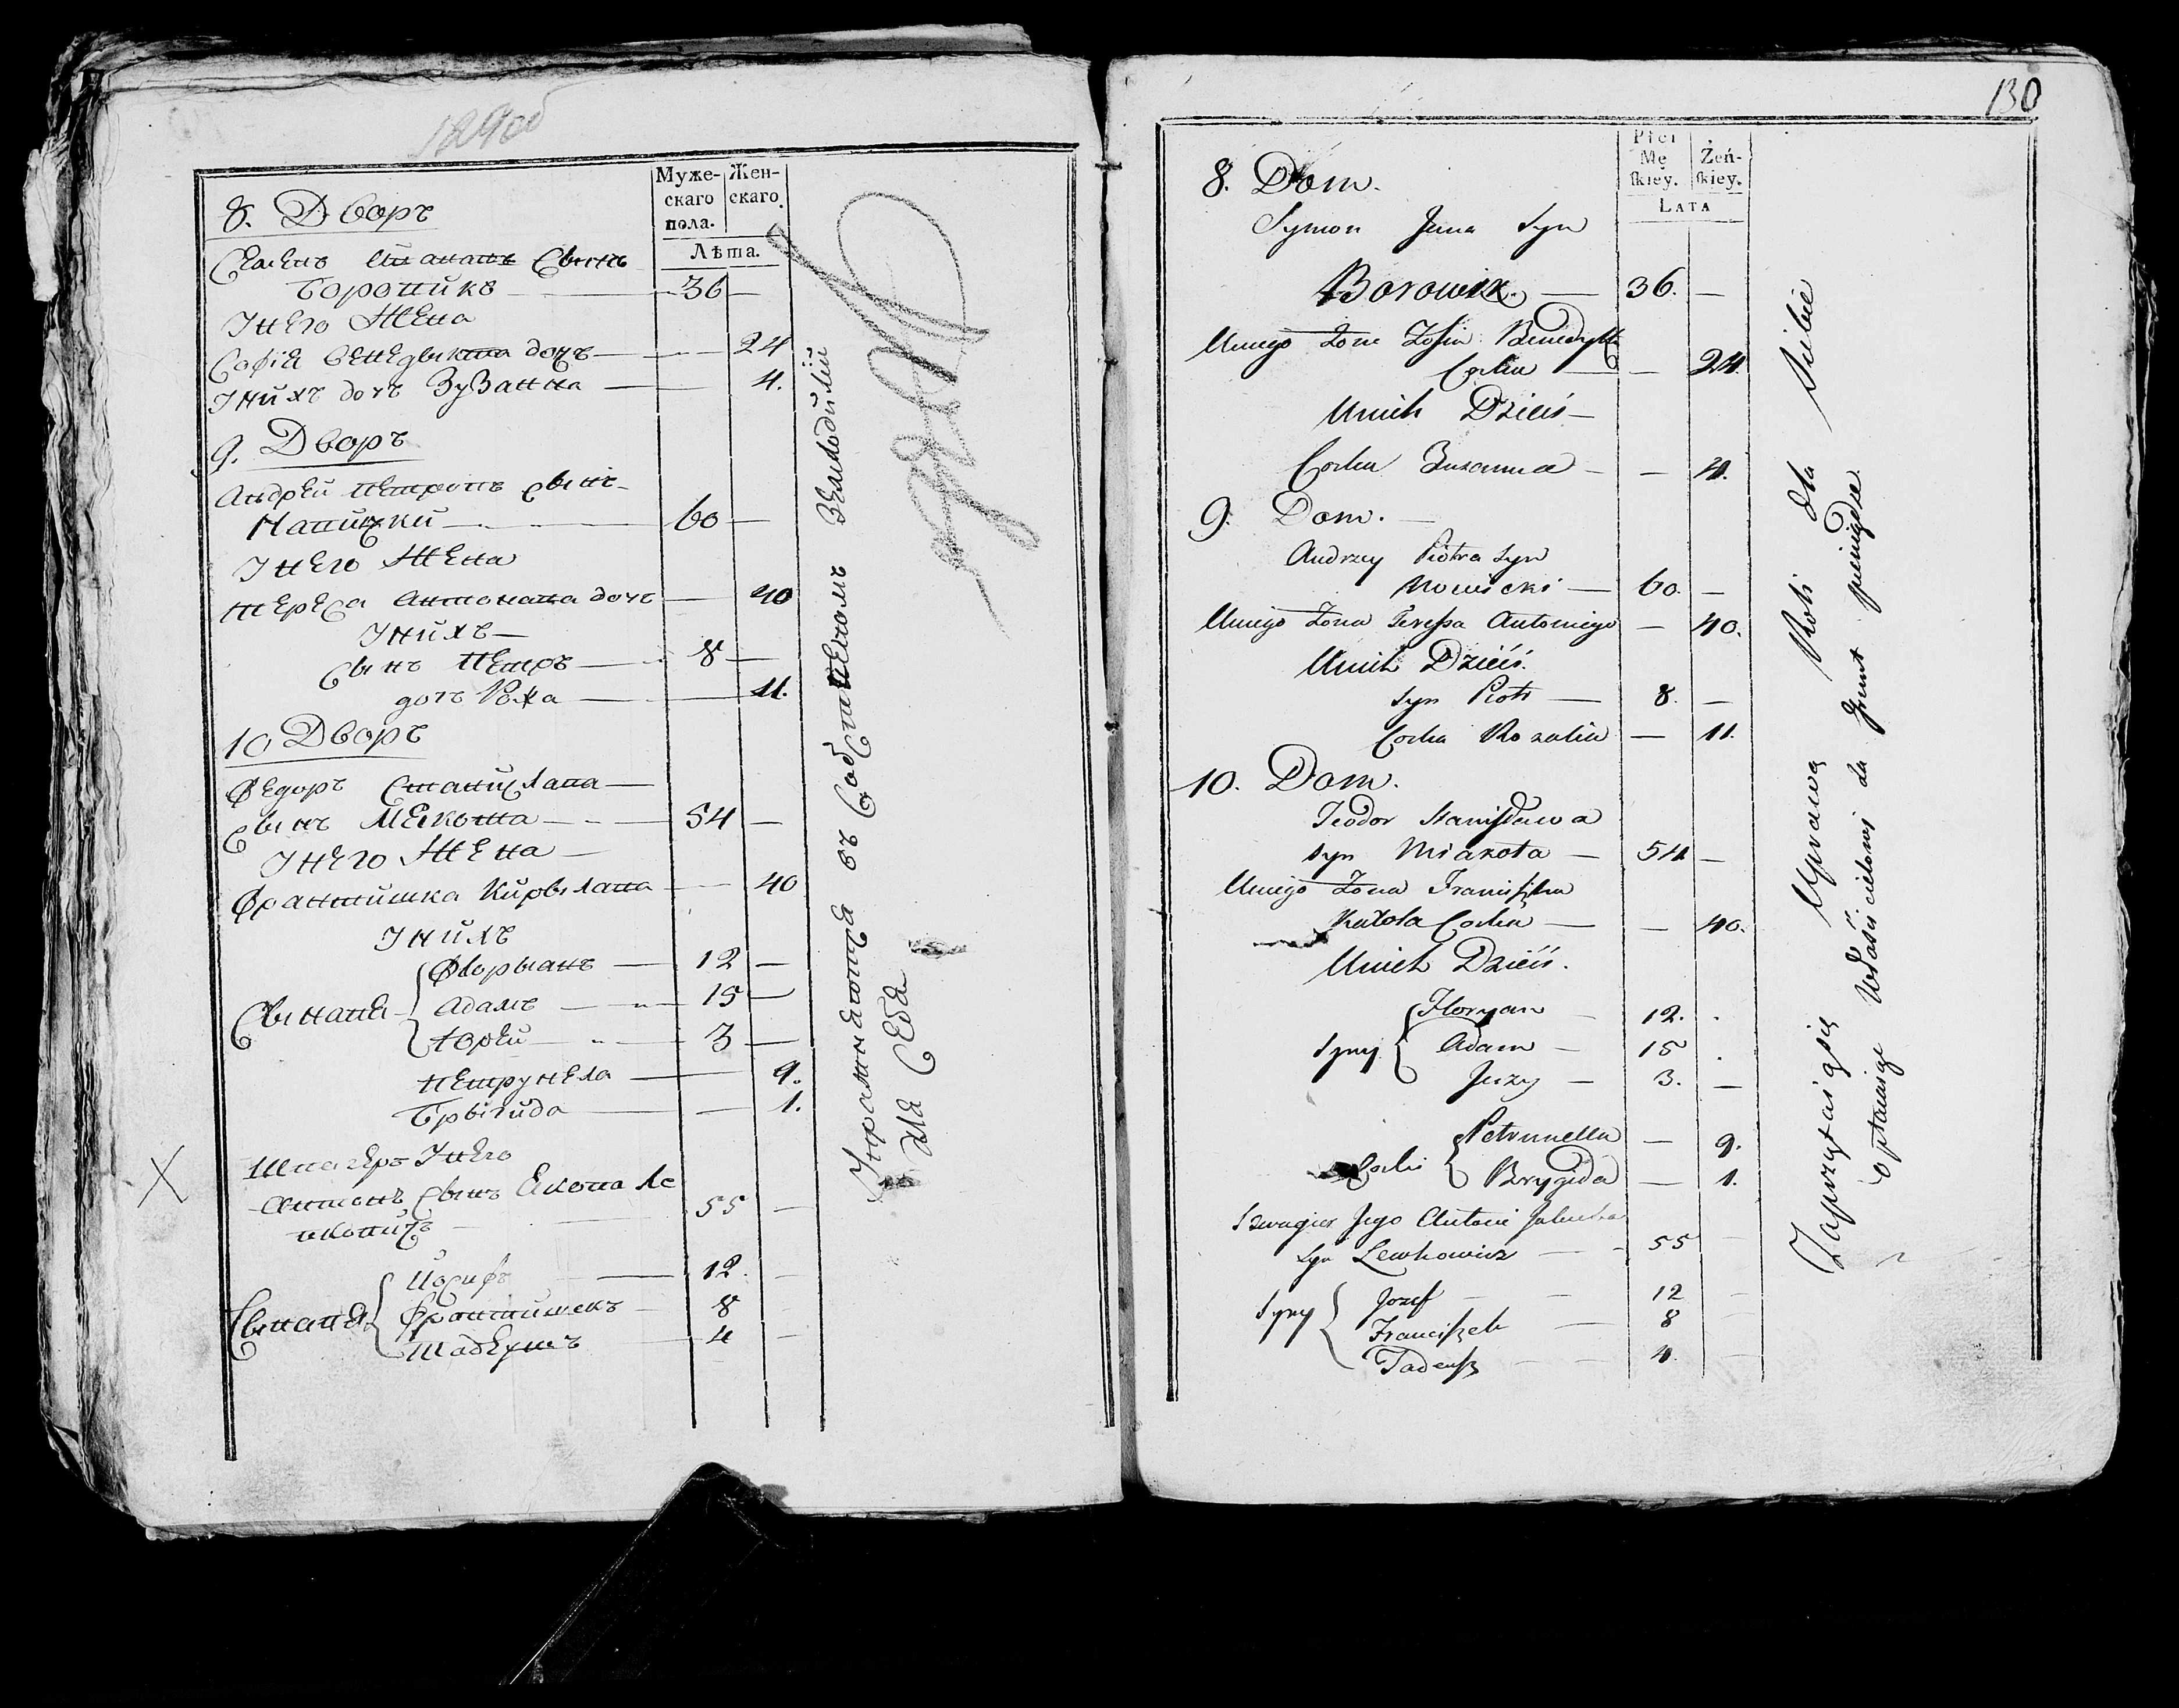 129об
Муже-
скаго
пола.
Жен-
скаго
Лѣта.
8. Дворъ
Семенъ Иванавъ Сынъ
Боровикъ 36
Унего Жена
Софія Бенедыкта дочъ 24
Унихъ дочъ Зузанна 4.
9. Дворъ
Андрей Петровъ сынъ
Навицки 60
Унего Жена
Тереса Антонава дочъ 40
Унихъ
Сынъ Петръ 8
дочъ Рожа 11.
10 Дворъ
Федоръ Станислава
сынъ Мекота 54
Унего Жена
Франтишка Кирылава 40
Унихъ
Сынавя
Флорыанъ 12
Адамъ 15
Юрей 3
Петрунела 9.
Брыгида 1.
Швагеръ Унего
Антонъ сынъ Якова Ле
вковичъ 55
Сынавя
Иосифъ 12
Франтишекъ 8
Тадеушъ 4
въ
для Себя
130
Płci
Mę
skiey.
Żeń-
skiey.
LATA
8. Dom.
Symon Jana Syn
Borowik. 36.
Uniego Zona Zofia Benedykta
Corka 24.
Unich Dzieci
Corka Zuzanna 4.
9. Dom.
Andrzey Piotra Syn
Nowicki 60.
Uniego Zona Teressa Antoniego 40.
Unich Dzieci.
Syn Piotr 8.
Corka Rozalia 11.
10. Dom.
Teodor Stanisława
Syn Miakota 54
Uniego Zona Franciszka
Corka 40.
Unich Dzieci.
Syny
Floryan 12.
Adam 15
Jerzy 3.
Corki
Petrunella 9.
Brygida 1.
Szwagier Jego Antoni Jakuba
Syn Lewkowicz 55
Syny
Jozef 12
Franciszek 8
Tadeusz 4.
Uprawą Roli dla siebie
za grunt pieniądze